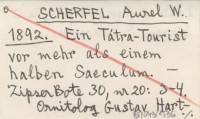 SCHERFEL Aurel W.
1892. Ein Tátra-Tourist
vor mehr als einem
halben Saeculum. —
Zipser Bote 30, nr 20: 3-4.
Ornitolog Gustav Hart-